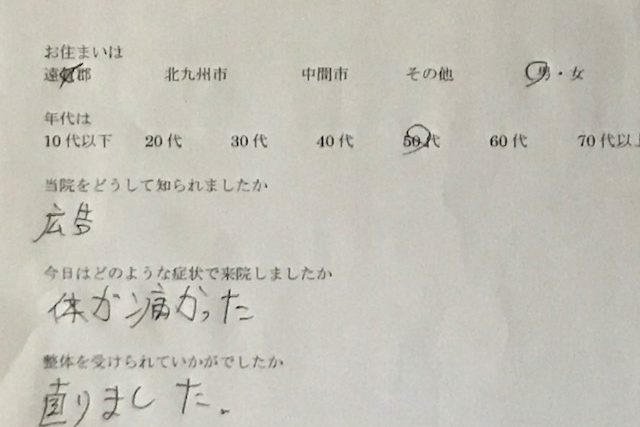 お住まいは
遠賀郡 北九州市 中間市 その他 男・女
年代は
10代以下 20代 30代 40代 50代 60代 70代以上
当院をどうして知られましたか
広告
今日はどのような症状で来院しましたか
体が痛かった
整体を受けられていかがでしたか
直りました。